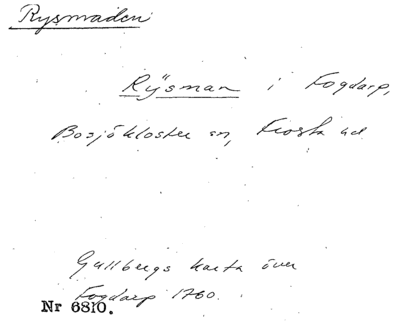 Rysmaden
Rÿsman i Fogdarp,
Bosjökloster sn, Frosta hd
Gullbergs karta över
Fogdarp 1760.
Nr 6810.